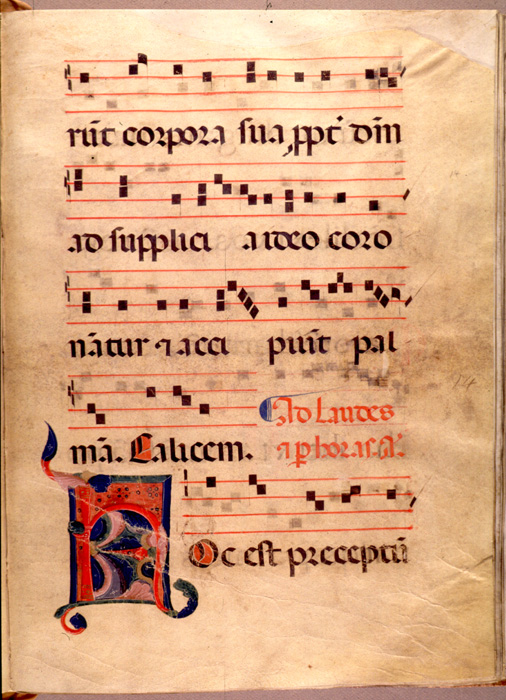 rūt corpora sua ꝓpt̄ dm̄
ad supplici a ideo coro
nātur ⁊ acci piūt pal
mā. Calicem. Ad Laudes
⁊ ꝑ horas. a͂.
HOc est preceptū